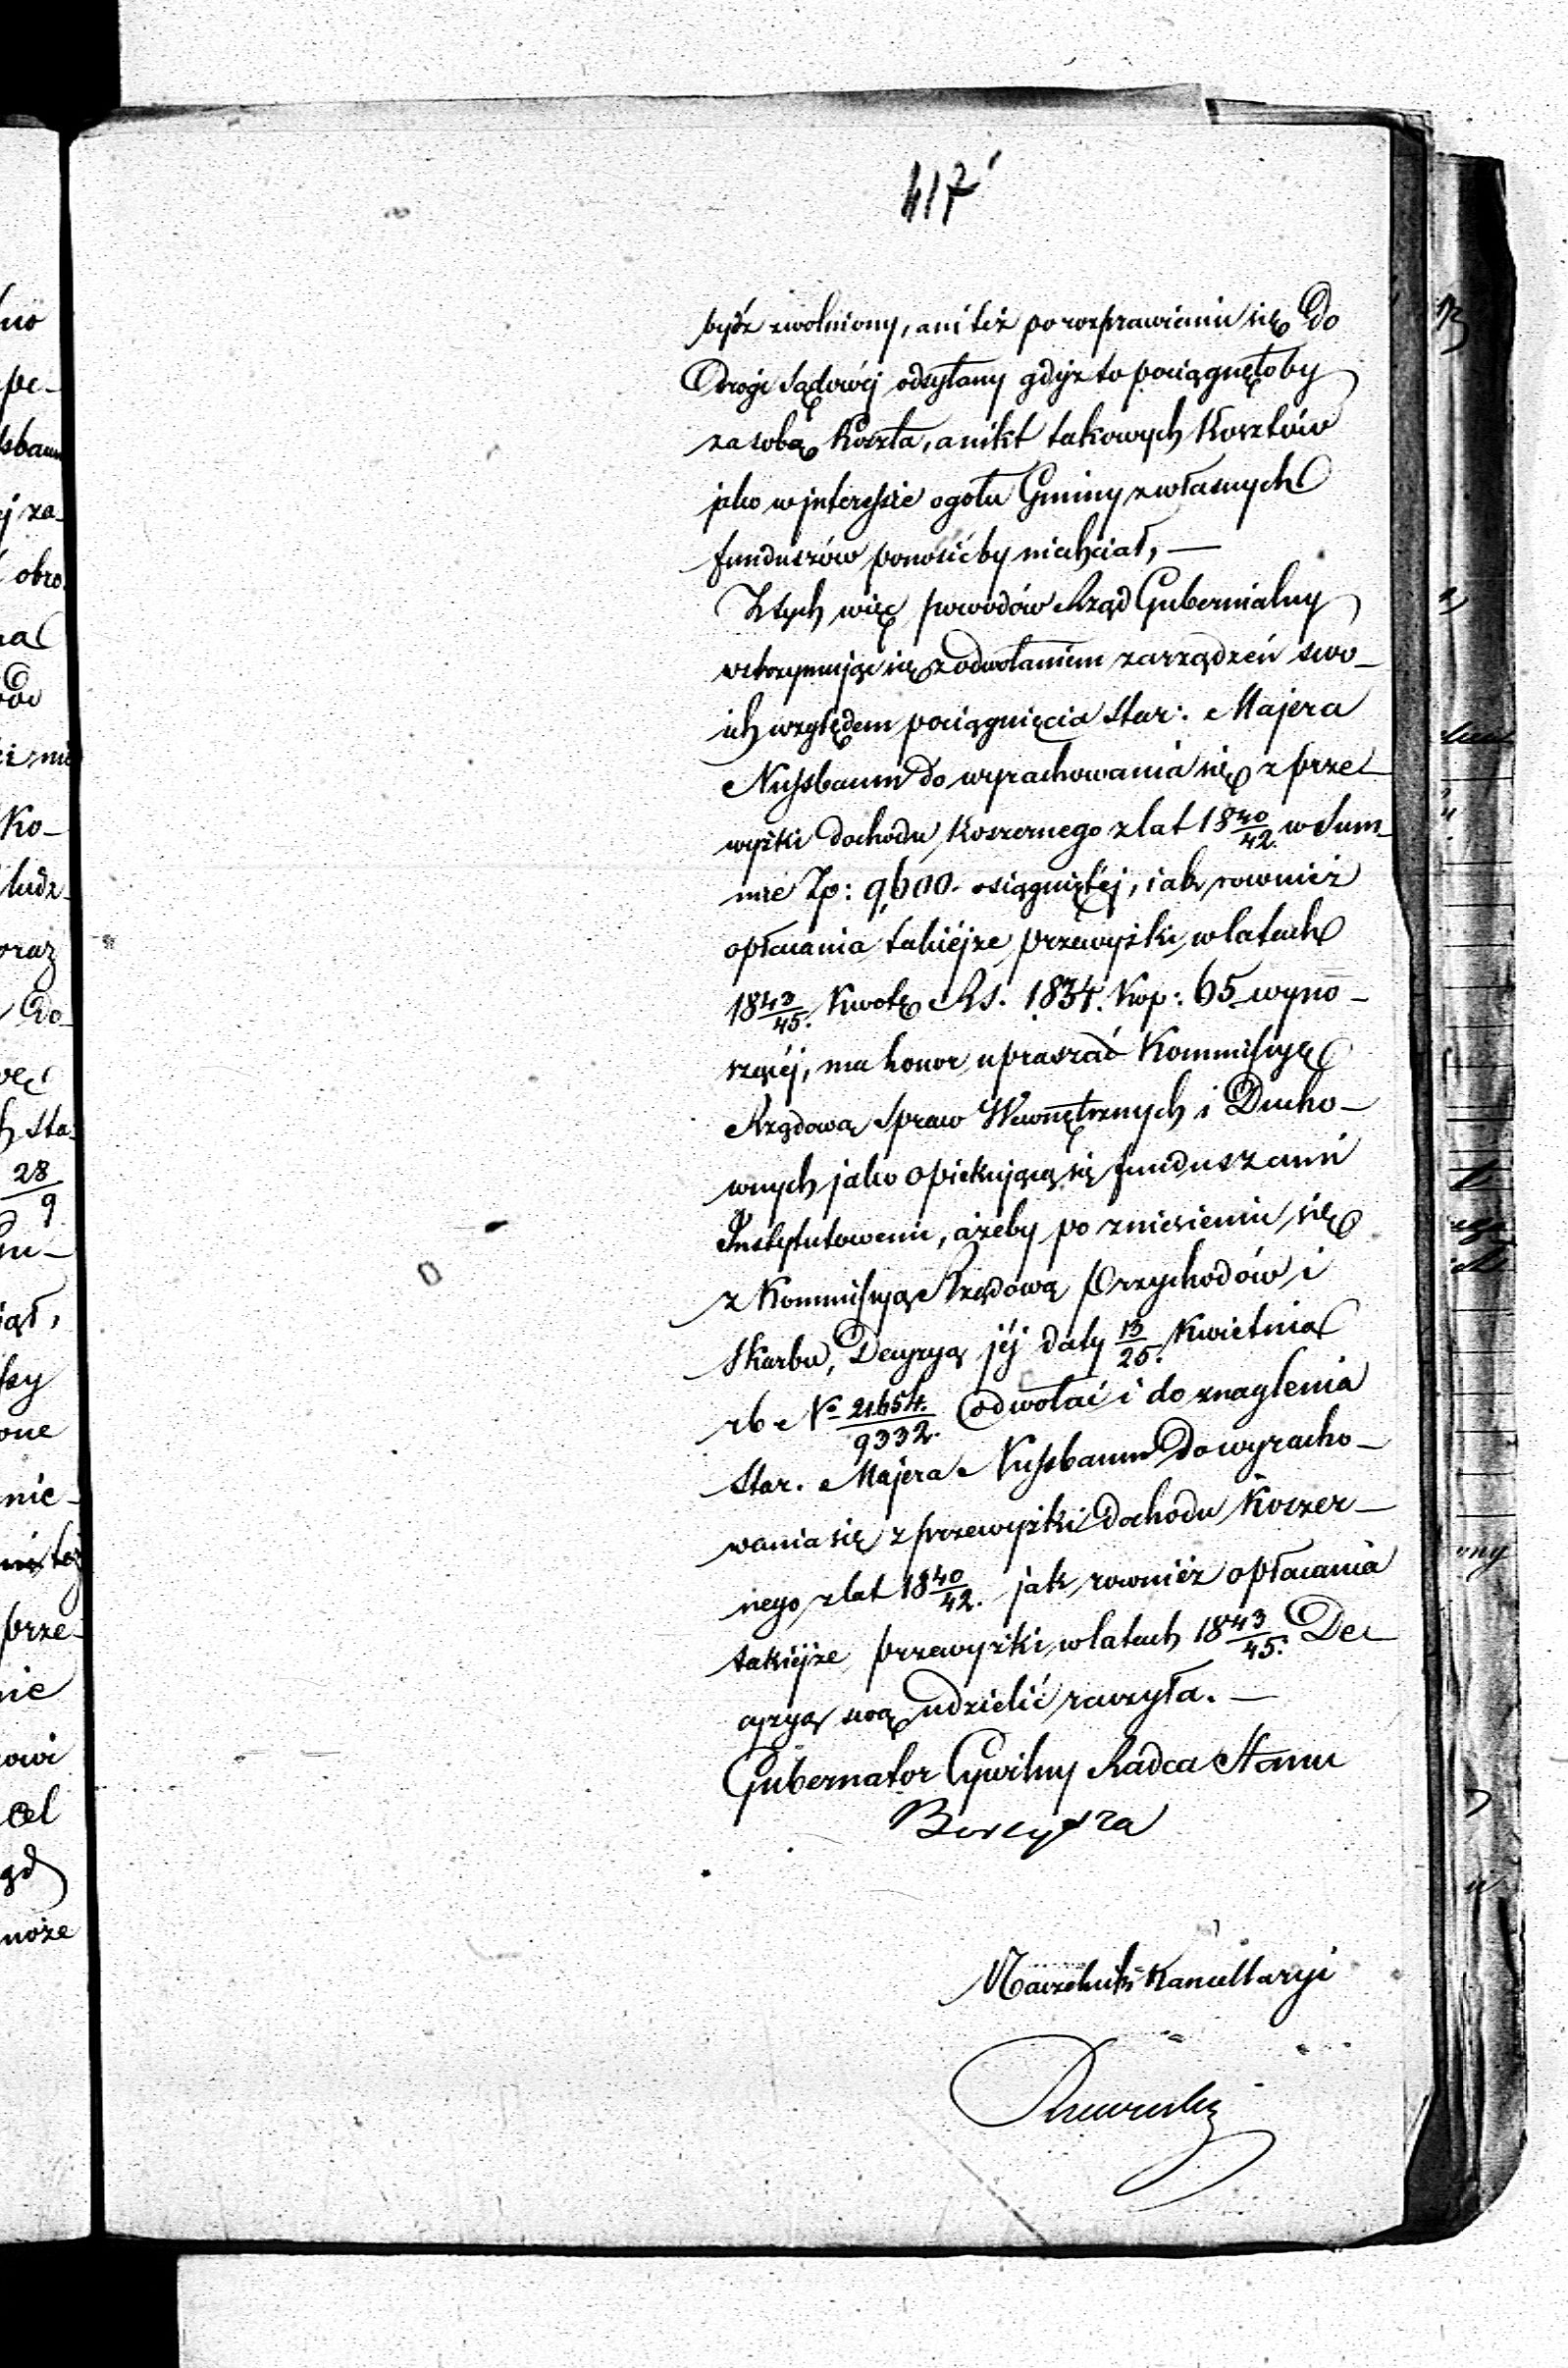 417
bydź zwolniony, ani też po rozprawieniu się do
Drogi Sądowéj odsyłany gdyż to pociągnęłoby
za sobą Koszta, a nikt takowych Kosztów
jako w jnteressie ogołu Gminy z własnych
funduszów ponosić by niechciał, —
Z tych więc powodów Rząd Gubernialny
wstrzymując się z odwołaniem zarządzeń swo-
ich względem pociągnięcia Star: Majera
Nussbaum do wyrachowania się z prze-
wyżki dochodu Koszernego z lat 18 40/42 w Sum-
mie Zp: 9,600. osiągniętéj, jak rownież
opłacania takiéjże przewyżki w latach
18 43/45. Kwotę Rs. 1834. Kop: 65 wyno-
szącéj, ma honor upraszać Kommissyę
Rządową Spraw Wewnętrznych i Ducho-
wnych jako opiekującą się funduszami
Instytutowemi, ażeby po zniesieniu się
z Kommissyą Rządową Przychodów i
Skarbu, Decyzyą jéj daty 13/25. Kwietnia
rb No 21654./9332. odwołać i do znaglenia
Star. Majera Nussbaum do wyracho-
wania się z przewyżki dochodu Koszer-
nego z lat 18 40/42. jak rownież opłacania
takiéjże przewyżki w latach 18 43/45. De-
cyzyą swą udzielić raczyła. —
Gubernator Cywilny Radca Stanu
Naczelnik Kancellaryi
no
pe-
sbaum
j za-
obro
na
Ko-
ludz-
oraz
do-
Sta-
28/9
one
nie-
prze-
nie
owi
cel
noże